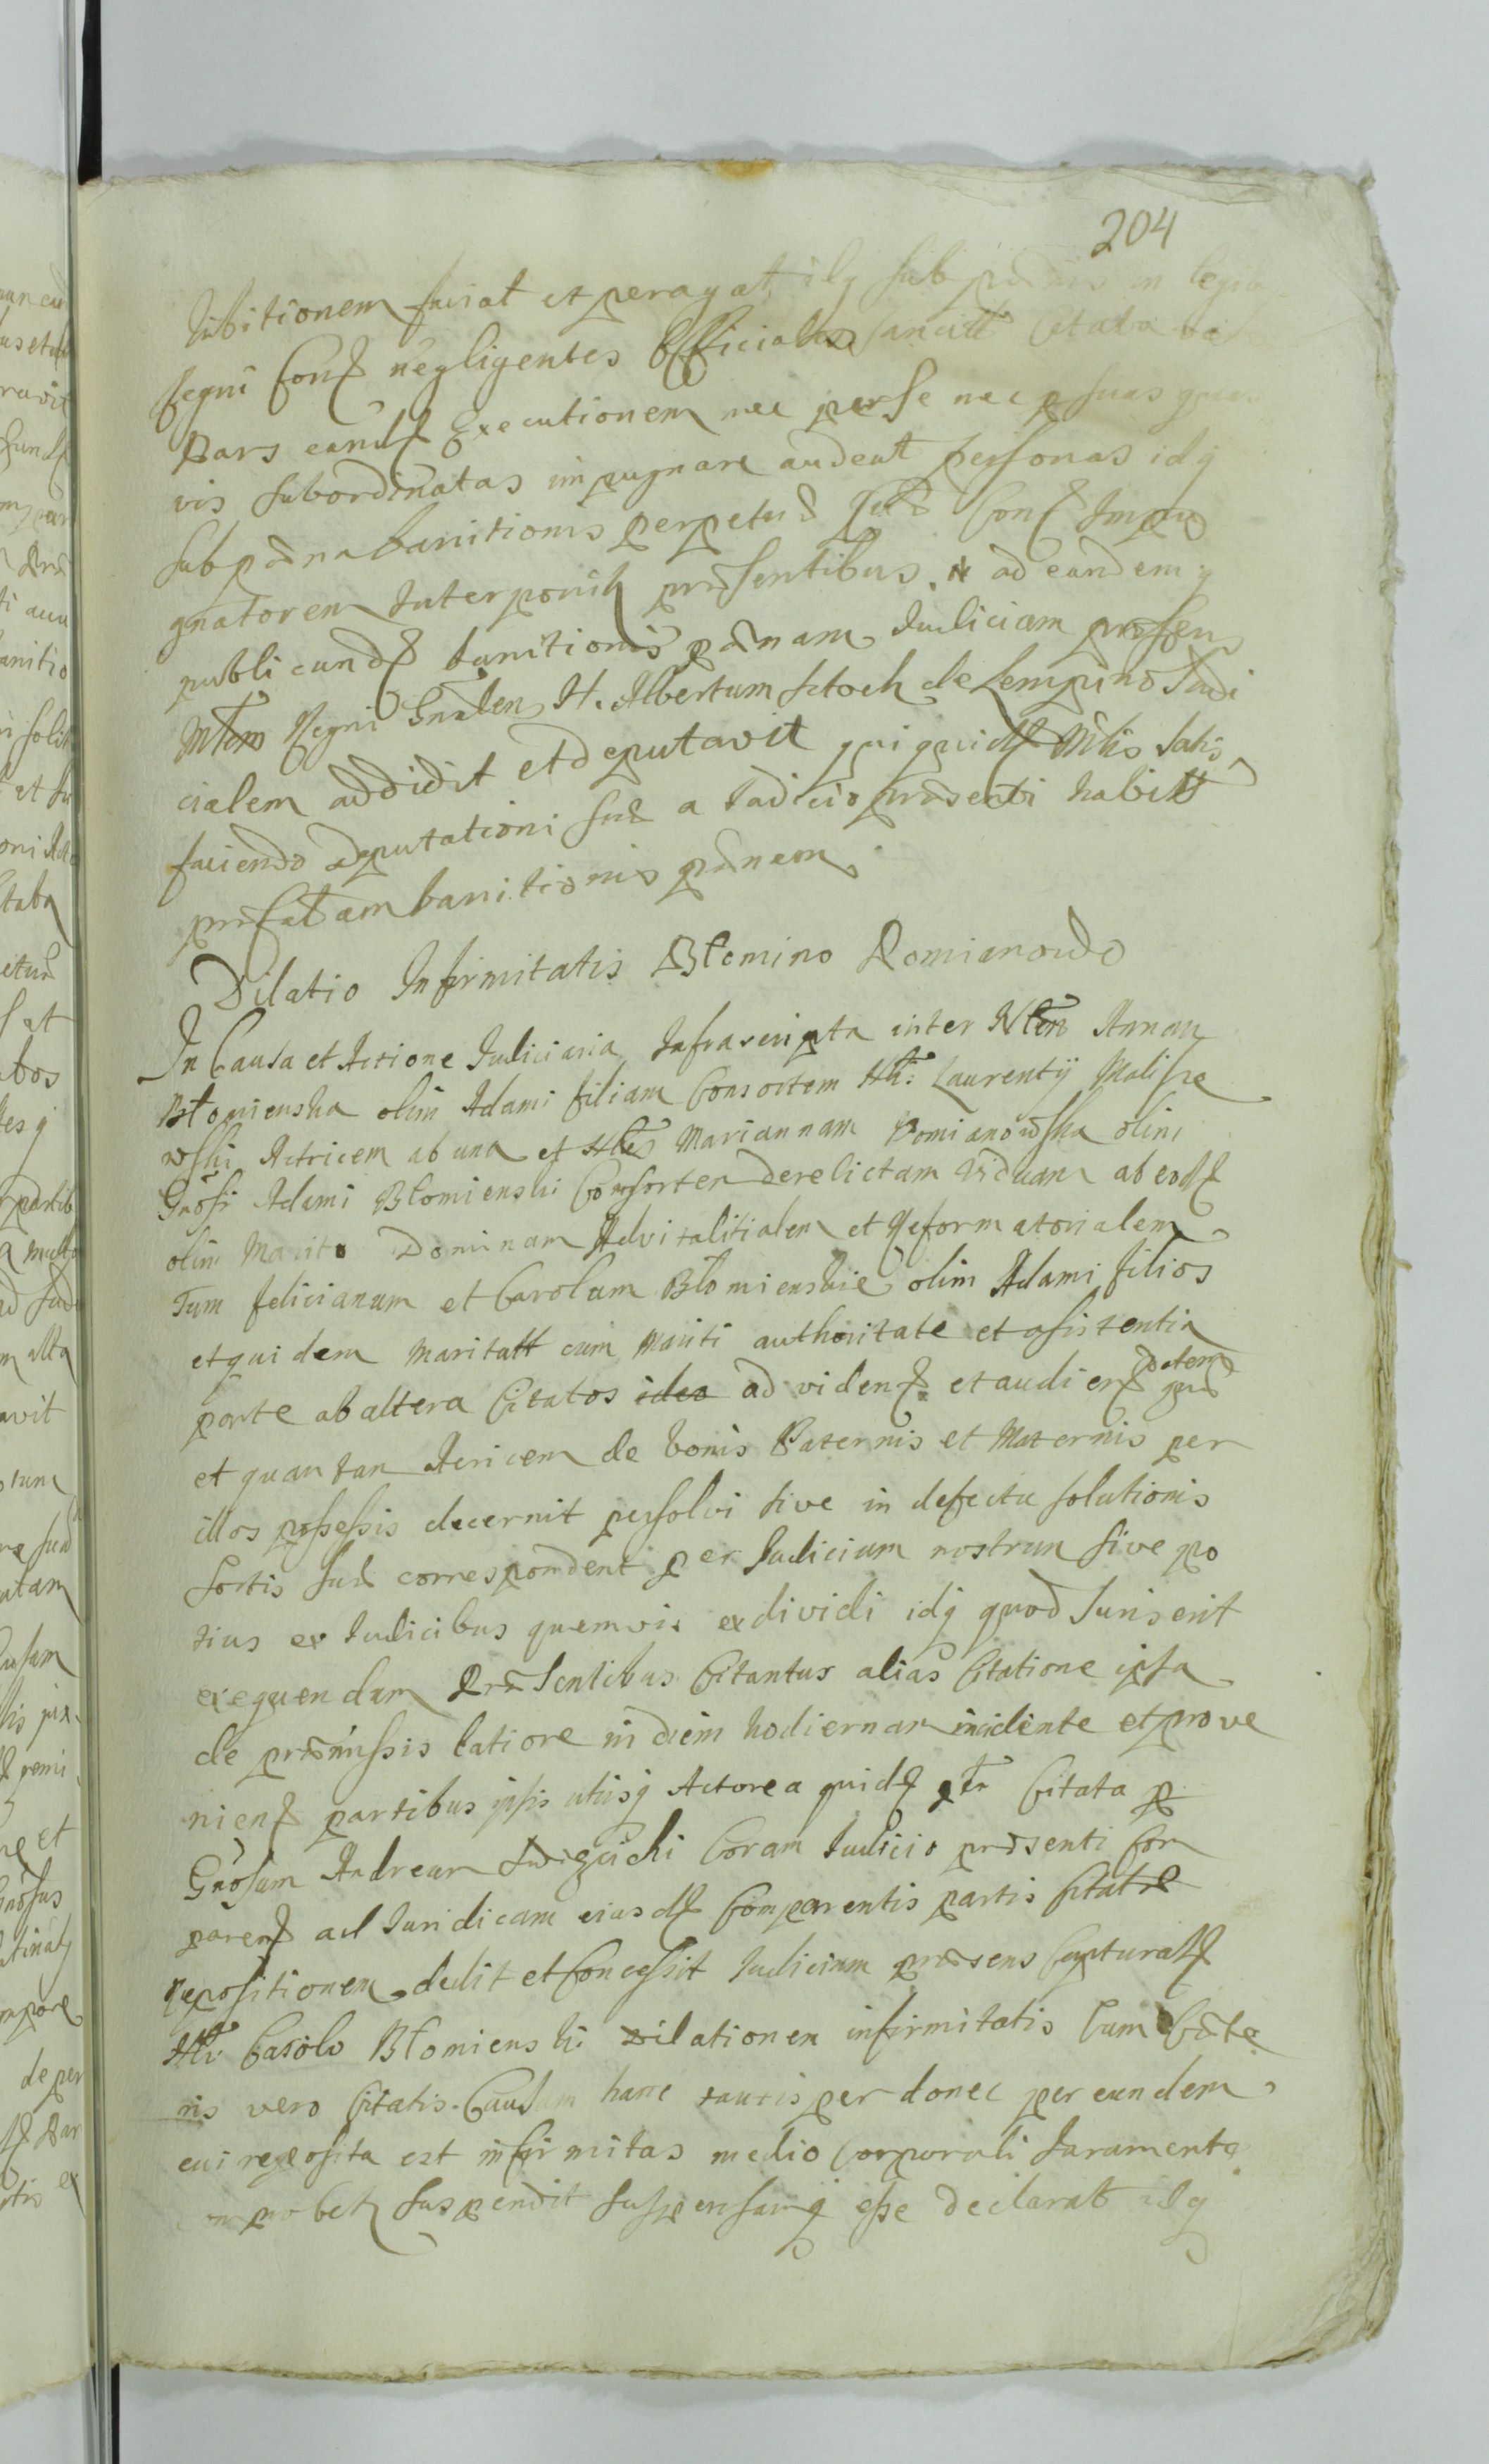 204
hibitionem faciat et peragat idq sub pœnis in legib
Regni Conŧ negligentes Officiales sancit Citata vero
Pars eandŧ Executionem nec per se nec p suas quas
vis subordinatas impugnare audeat personas idq
sub pœna bannitionis perpetuæ Conŧ Impu
gnatorem Interponit præsentibus. ad eandem q
publicandŧ banitionis pœnam Iudicium præsens
Mtem Regni Gnalem H. Albertum de Lempino Iudi
cialem addidit et deputavit qui quidŧ Mtlis satis
faciendo deputationi suæ a Iudicio præsenti habitæ
præfatam banitionis pœnam
Dilatio Infirmitatis Błomino Romianowo
In Causa et Actione Iudiciaria Infrascripta inter Nlem Annam
Błomienska olim Adami filiam Consortem Nlis Laurentij Malisze
wski Actricem ab una et Nles Mariannam Bomianowska olim
Gnosi Adami Błomienski Consortem derelictam Viduam ab eodŧ
olim Marito Dominam Advitalitialem et Reformatorialem
Tum Felicianum et Carolum Błomienskie olim Adami filios
et quidem Maritatŧ cum Mariti authoritate et assistentia
parte ab altera Citatos ideo ad videnŧ et audienŧ dotem quæ
et quantam Actricem de bonis Paternis et Maternis per
illos possessis decernit persolvi sive in defectu solutionis
sortis suæ correspondent per Iudicium nostrum sive po
tius ex Iudicibus quemvis exdividi idq quod Iuris erit
exequendum Præsentibus Citantur alias Citatione ipsa
de præmissis latiore in diem hodiernam incidente et prove
nienŧ partibus ipsis utrisq Actorea quidŧ Citata p
Gnosum Andream coram Iudicio præsenti Com
parenŧ ad Iuridicam eiusdŧ Comparentis partis Citatæ
repositionem dedit et Concessit Iudicium præsens Capturalŧ
Nli Carolo Błomienski dilationem infirmitatis Cum Cæte
ris vero Citatis Causam hanc tantisper donec per eundem
cui reposita est infirmitas medio corporali Iuramento
comprobetŧ suspendit suspensamq esse declarat idq